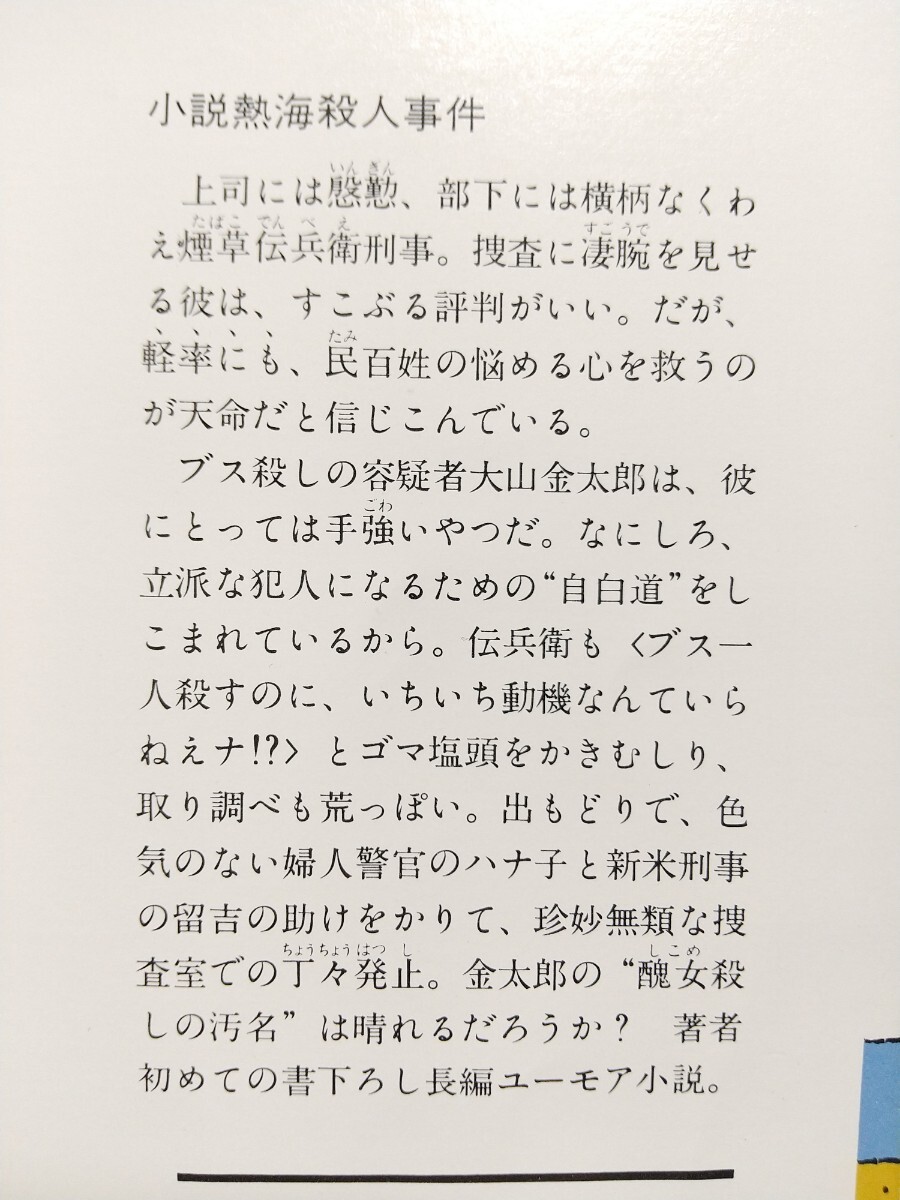 小説熱海殺人事件
上司には慇懃、部下には横柄なくわ
え煙草伝兵衛刑事。捜査に凄腕を見せ
る彼は、すこぶる評判がいい。だが、
軽率にも、民百姓の悩める心を救うの
が天命だと信じこんでいる。
ブス殺しの容疑者大山金太郎は、彼
にとっては手強いやつだ。なにしろ、
立派な犯人になるための“自白道”をし
こまれているから。伝兵衛も〈ブス一
人殺すのに、いちいち動機なんていら
ねえナ!?〉とゴマ塩頭をかきむしり、
取り調べも荒っぽい。出もどりで、色
気のない婦人警官のハナ子と新米刑事
の留吉の助けをかりて、珍妙無類な捜
査室での丁々発止。金太郎の“醜女殺
しの汚名”は晴れるだろうか?　著者
初めての書下ろし長編ユーモア小説。